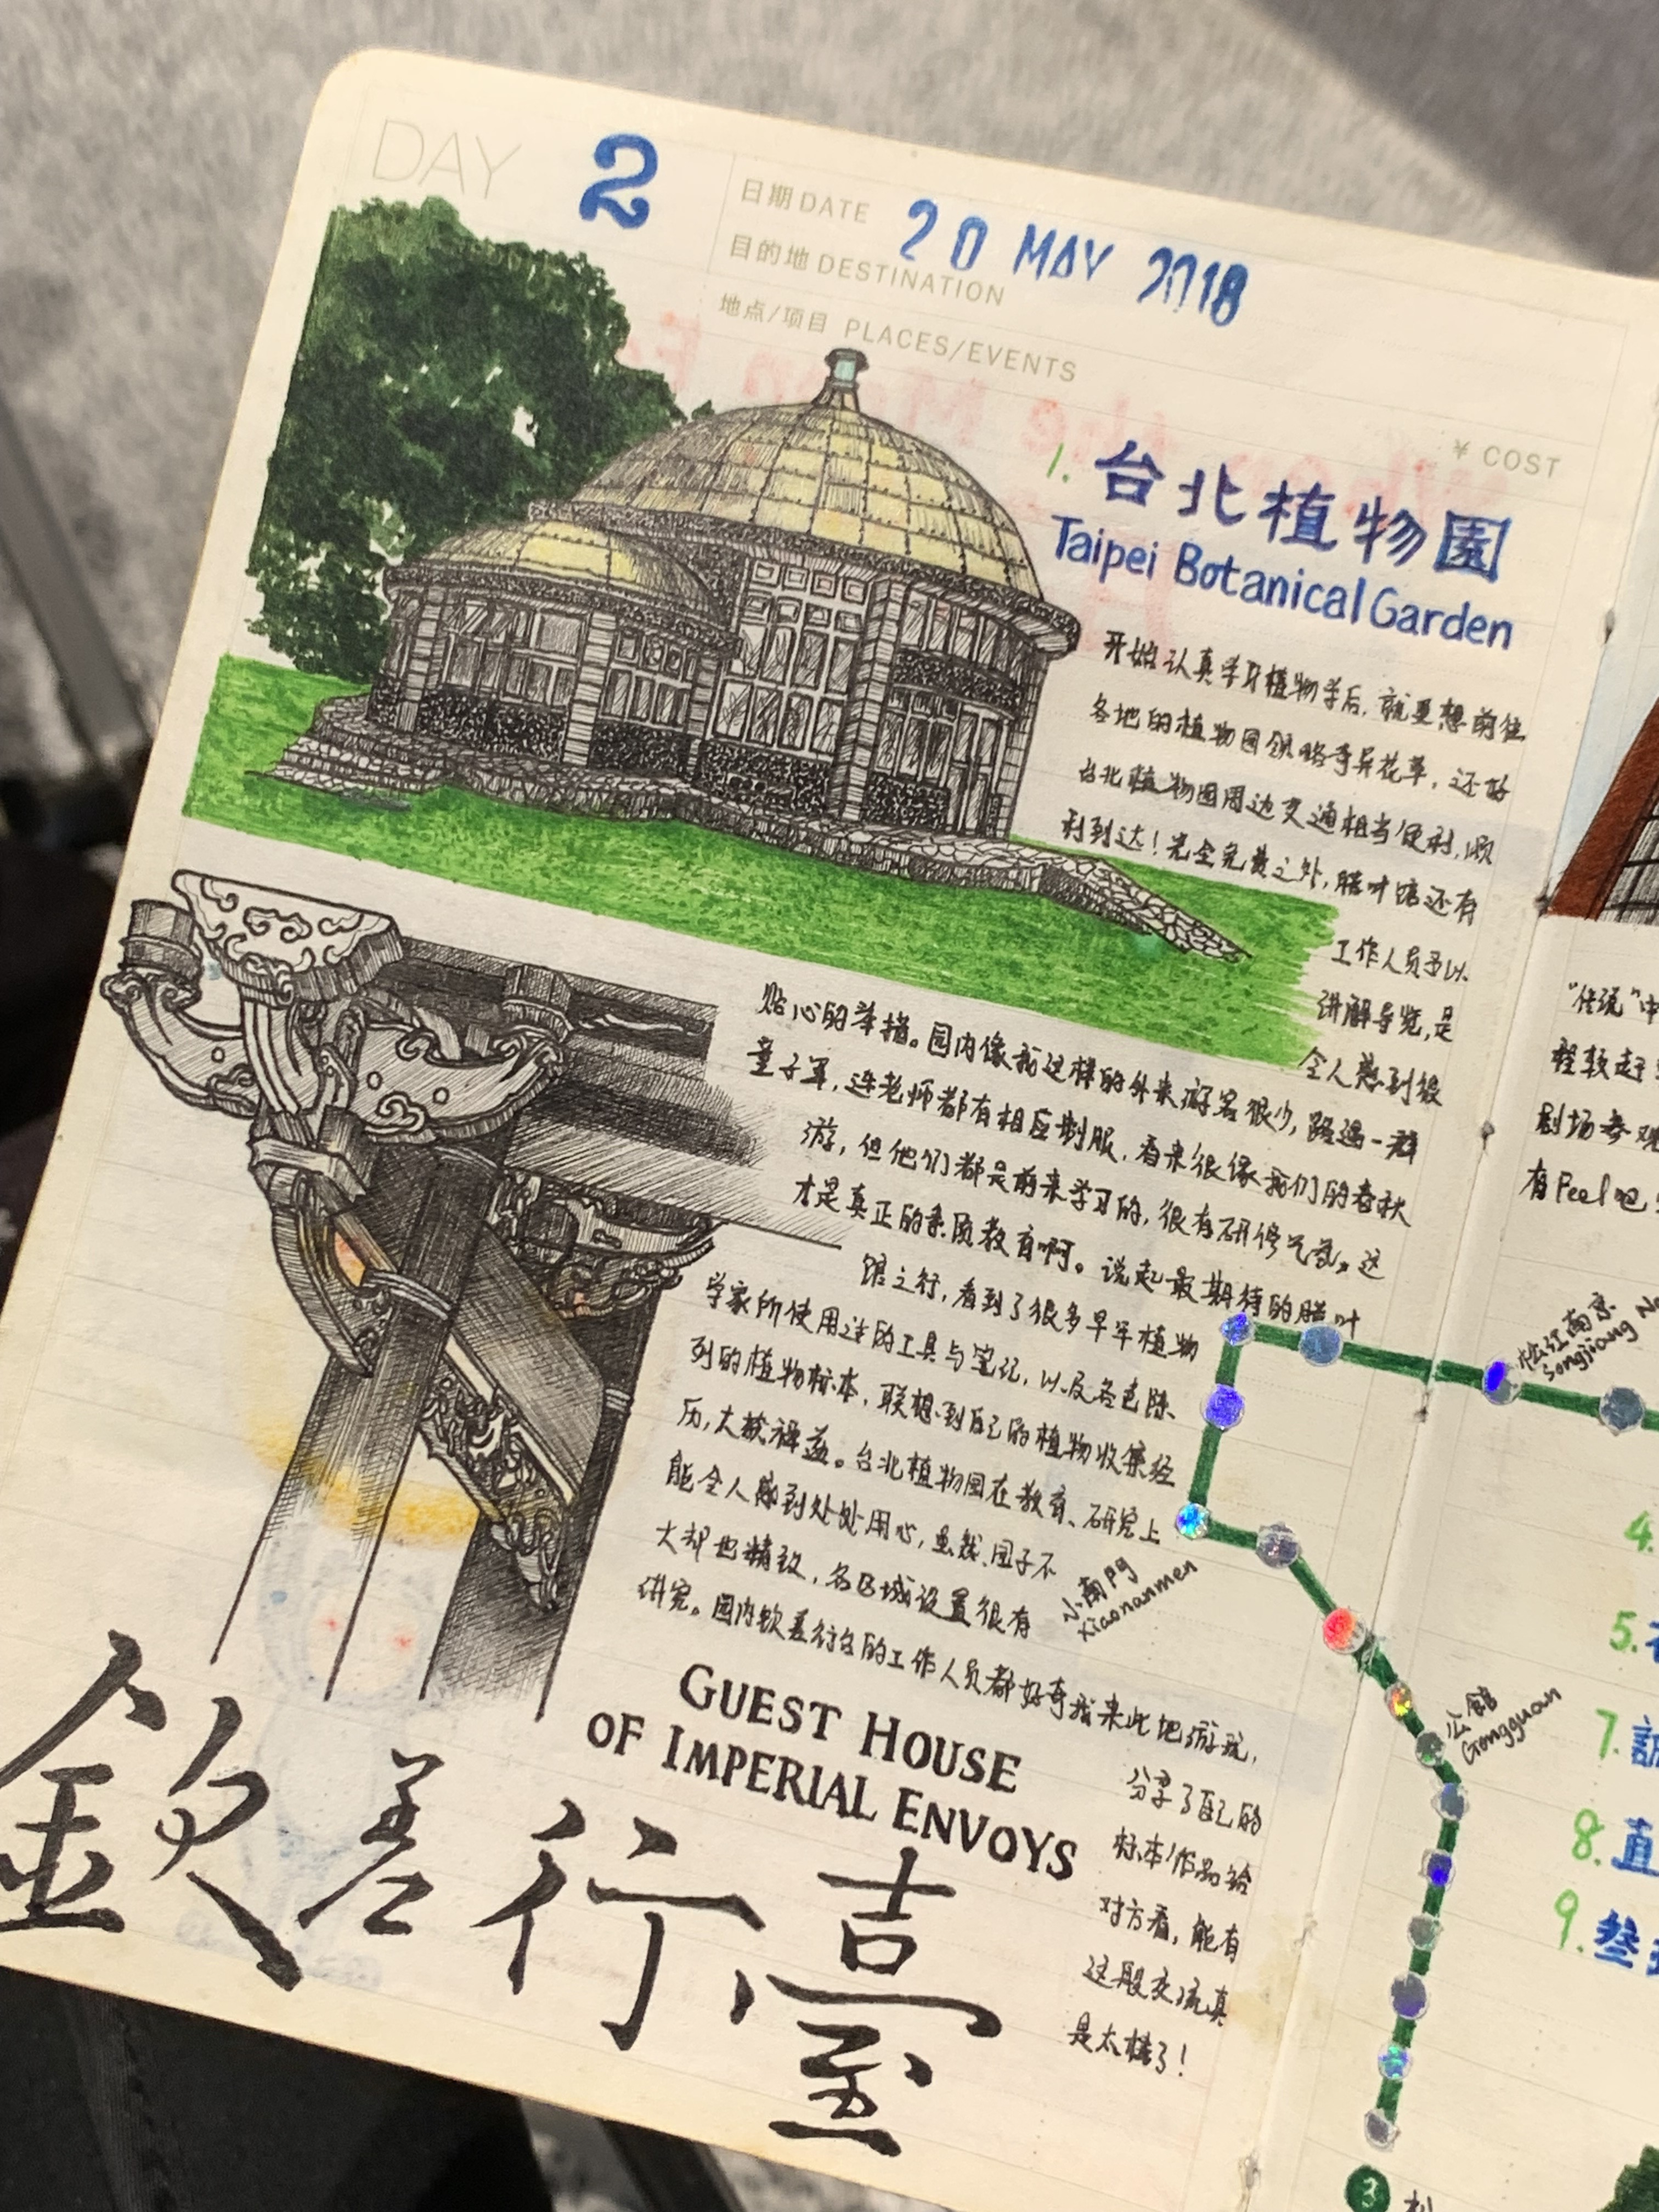 DAY 2
日期 DATE 20 MAY 2018
目的地 DESTINATION
地点/项目 PLACES/EVENTS
¥ COST
1. 台北植物園
Taipei Botanical Garden
开始认真学习植物学后,就更想前往
各地的植物园领略奇异花草,还好
台北植物园周边交通相当便利,顺
利到达!完全免费之外,腊叶馆还有
工作人员予以
讲解导览,是
令人感到很
贴心的举措。园内像我这样的外来游客很少,路遇一群
童子军,连老师都有相应制服,看来很像我们的春秋
游,但他们都是前来学习的,很有研修气氛。这
才是真正的素质教育啊。说起最期待的腊叶
馆之行,看到了很多早年植物
学家所使用过的工具与笔记,以及各色陈
列的植物标本,联想到自己的植物收集经
历,大获裨益。台北植物园在教育、研究上
能令人感到处处用心,虽然园子不
大却也精致,各区域设置很有
讲究。园内钦差行台的工作人员都好奇我来此地游玩,
分享了自己的
标本/作品给
对方看,能有
这段交流真
是太棒了!
GUEST HOUSE
OF IMPERIAL ENVOYS
欽差行臺
松江南京
Songjiang
小南門
Xiaonanmen
公館
Gongguan
3
"传统"中
剧场参观
有Feel吧
4.
5.
7.
8. 直
9. 叁